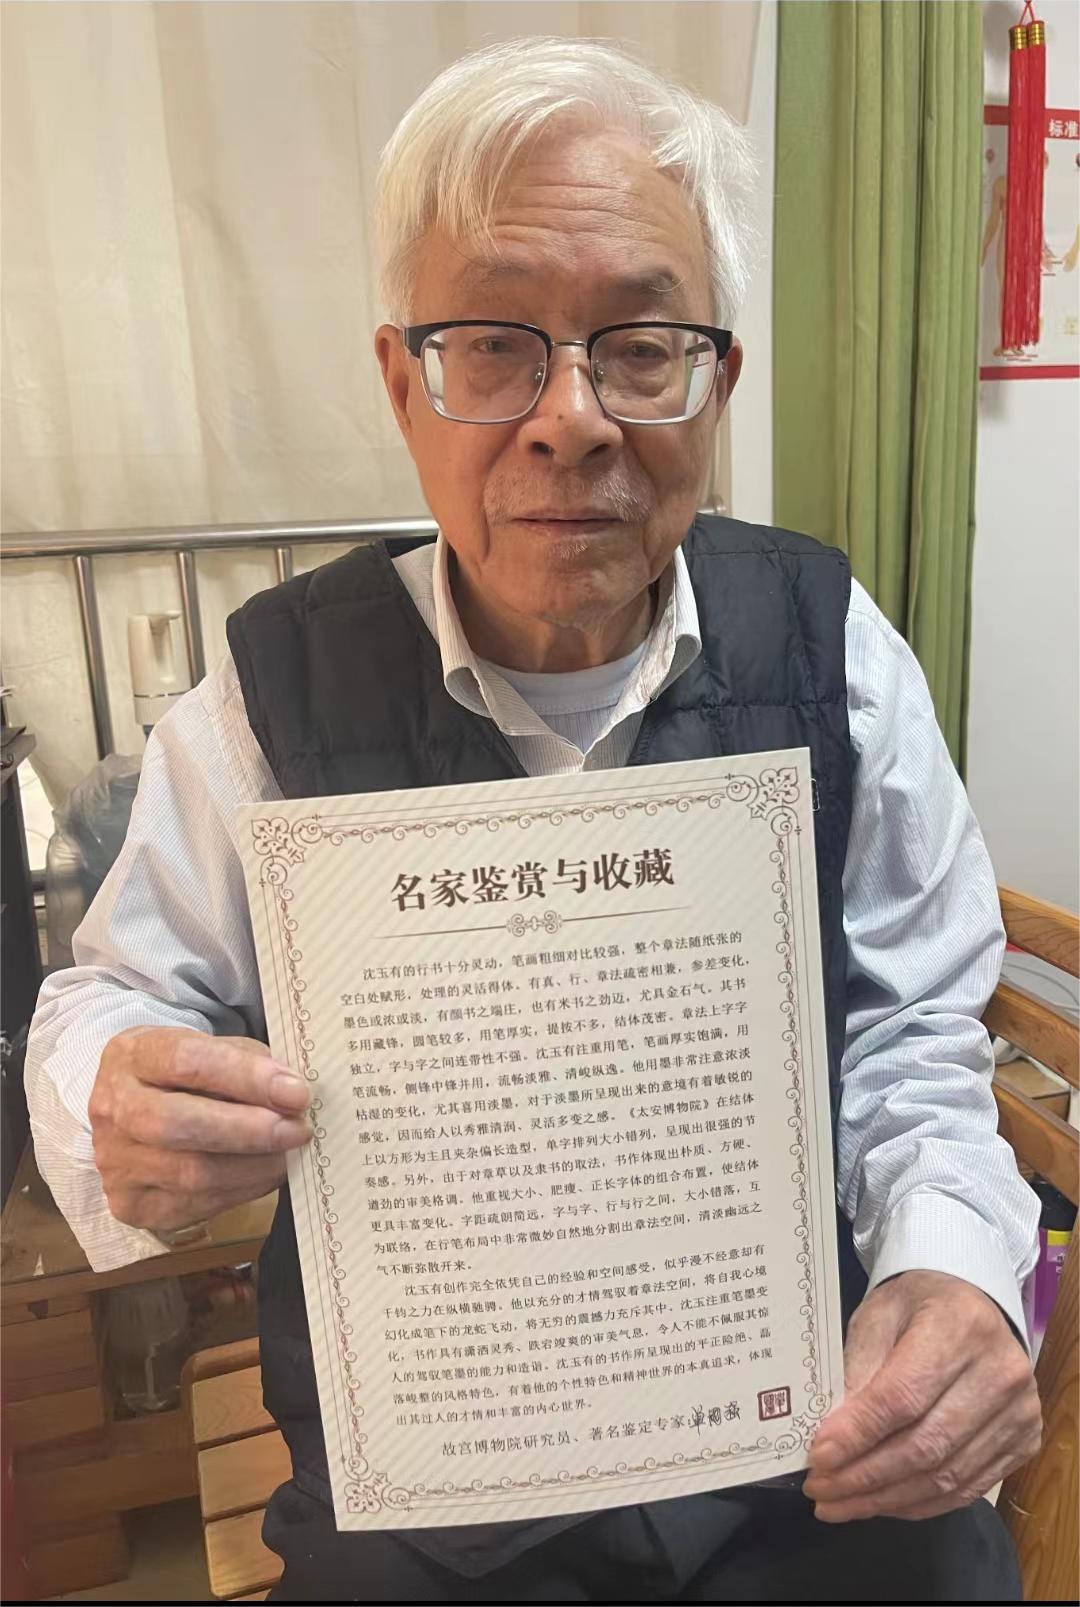 标准
名家鉴赏与收藏
沈玉有的行书十分灵动，笔画粗细对比较强，整个章法随纸张的
空白处赋形，处理的灵活得体。有真、行、章法疏密相兼，参差变化，
墨色或浓或淡，有颜书之端庄，也有米书之劲迈，尤具金石气。其书
多用藏锋，圆笔较多，用笔厚实，提按不多，结体茂密。章法上字字
独立，字与字之间连带性不强。沈玉有注重用笔，笔画厚实饱满，用
笔流畅，侧锋中锋并用，流畅淡雅、清峻纵逸。他用墨非常注意浓淡
枯湿的变化，尤其喜用淡墨，对于淡墨所呈现出来的意境有着敏锐的
感觉，因而给人以秀雅清润、灵活多变之感。《太安博物院》在结体
上以方形为主且夹杂偏长造型，单字排列大小错列，呈现出很强的节
奏感。另外，由于对章草以及隶书的取法，书作体现出朴质、方硬、
遒劲的审美格调。他重视大小、肥瘦、正长字体的组合布置，使结体
更具丰富变化。字距疏朗简远，字与字、行与行之间，大小错落，互
为联络，在行笔布局中非常微妙自然地分割出章法空间，清淡幽远之
气不断弥散开来。
沈玉有创作完全依凭自己的经验和空间感受，似乎漫不经意却有
千钧之力在纵横驰骋。他以充分的才情驾驭着章法空间，将自我心境
幻化成笔下的龙蛇飞动，将无穷的震撼力充斥其中。沈玉注重笔墨变
化，书作具有潇洒灵秀、跌宕竣爽的审美气息，令人不能不佩服其惊
人的驾驭笔墨的能力和造诣。沈玉有的书作所呈现出的平正险绝、磊
落峻整的风格特色，有着他的个性特色和精神世界的本真追求，体现
出其过人的才情和丰富的内心世界。
故宫博物院研究员、著名鉴定专家:单国强